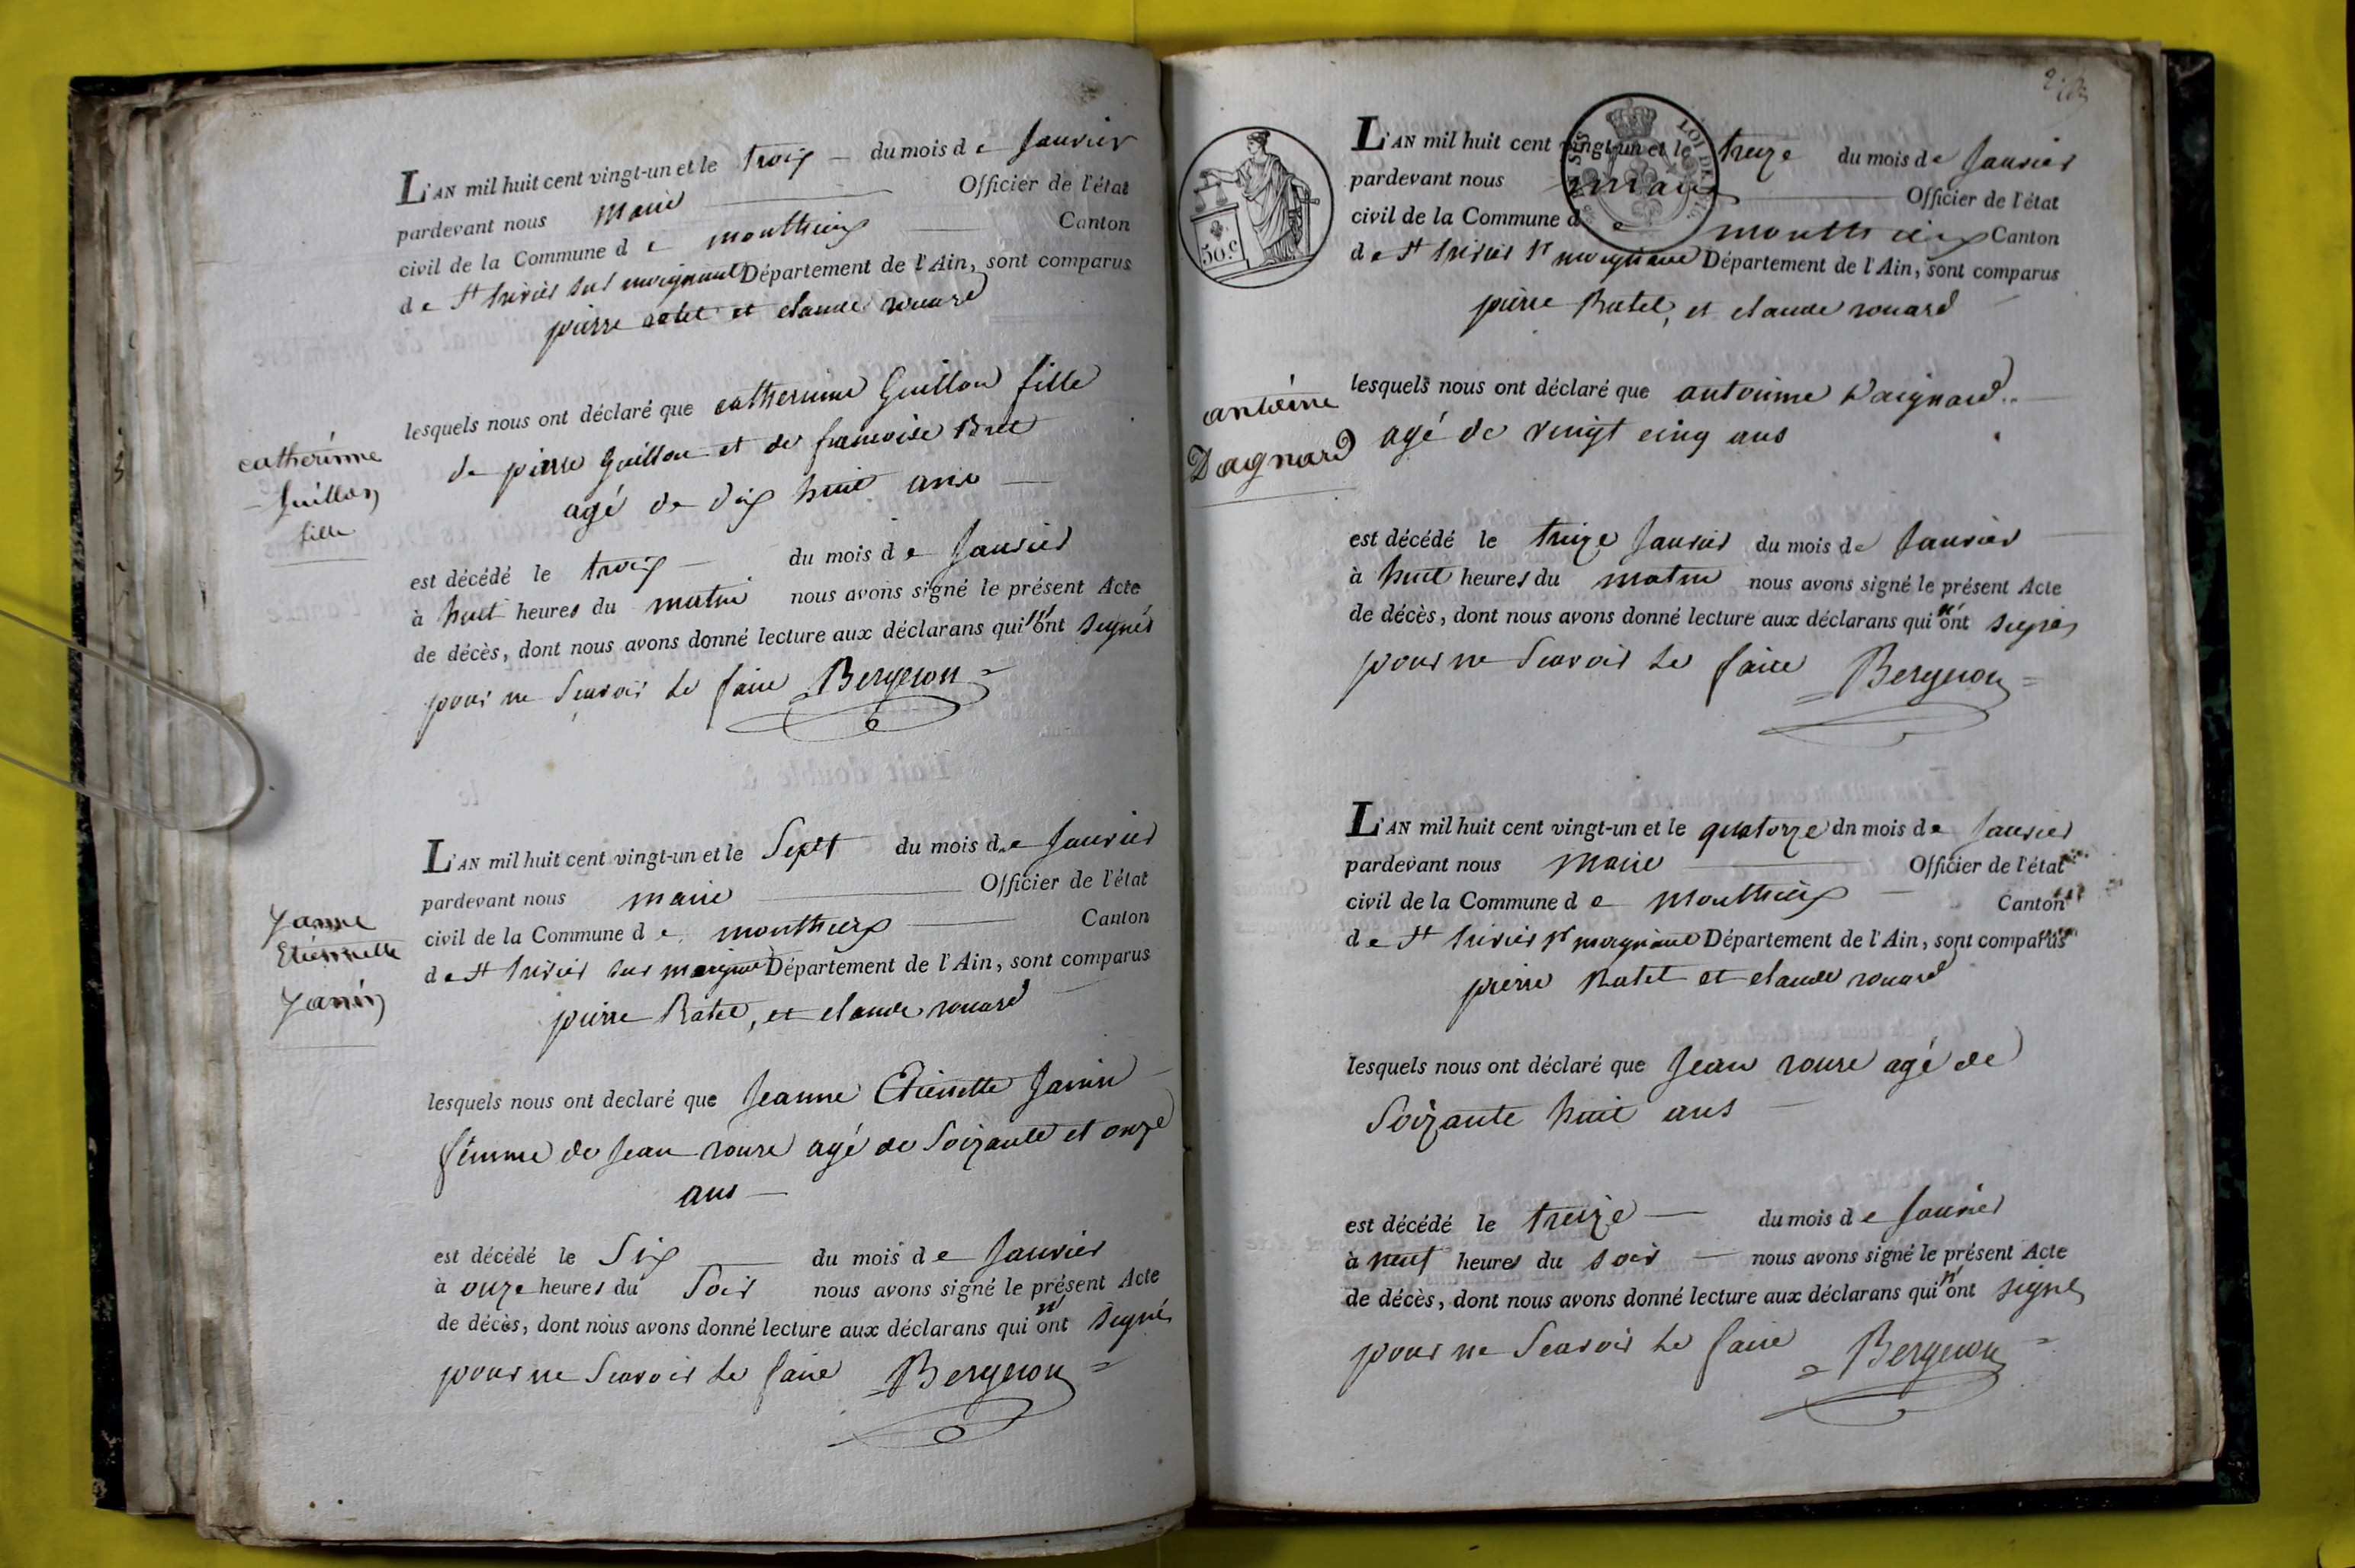 L'AN mil huit cent vingt-un et le trois du mois de Janvier
pardevant nous Maire Officier de l'état
civil de la Commune de monthieux Canton
de St trivier sur moignans Département de l'Ain, sont comparus
pierre ratet et claude rouard
lesquels nous ont déclaré que catherinne Guillon fille
de pierre Guillon et de francoise Bret
agé de dix huit ans
est décédé le trois du mois de Janvier
à huit heures du matin nous avons signé le présent Acte
de décès, dont nous avons donné lecture aux déclarans qui n'ont signés
pour ne Scavoir le faire Bergeron
catherinne
Guillon
fille
L'AN mil huit cent vingt-un et le Sept du mois de Janvier
pardevant nous maire Officier de l'état
civil de la Commune de monthieux Canton
de St trivier sur moignans Département de l'Ain, sont comparus
pierre Ratet, et claude rouard
lesquels nous ont declaré que Jeanne Etiennette Janin
femme de Jean roure agé de Soixante et onze
ans
est décédé le Six du mois de Janvier
à onze heures du Soir nous avons signé le présent Acte
de décès, dont nous avons donné lecture aux déclarans qui n'ont signés
pour ne Scavoir le faire Bergeron
Janne
Etiennette
Janin
L'AN mil huit cent vingt-un et le treize du mois de Janvier
pardevant nous maire Officier de l'état
civil de la Commune de monthieux Canton
de St trivier sr moignans Département de l'Ain, sont comparus
pierre Ratet, et claude rouard
lesquels nous ont déclaré que antoinne Daignard
agé de vingt cinq ans
est décédé le treize Janvier du mois de Janvier
à huit heures du matin nous avons signé le présent Acte
de décès, dont nous avons donné lecture aux déclarans qui n'ont signés
pour ne Scavoir le faire Bergeron
antoine
Dagnard
50.c
LOI DE
L'AN mil huit cent vingt-un et le quatorze dn mois de Janvier
pardevant nous Maire Officier de l'état
civil de la Commune de Monthieux Canton
de St trivier sr moignans Département de l'Ain, sont comparus
pierre Ratet et claude rouard
lesquels nous ont déclaré que Jean roure agé de
Soixante huit ans
est décédé le treize du mois de Janvier
à neuf heures du soir nous avons signé le présent Acte
de décès, dont nous avons donné lecture aux déclarans qui n'ont signés
pour ne Scavoir le faire Bergeron